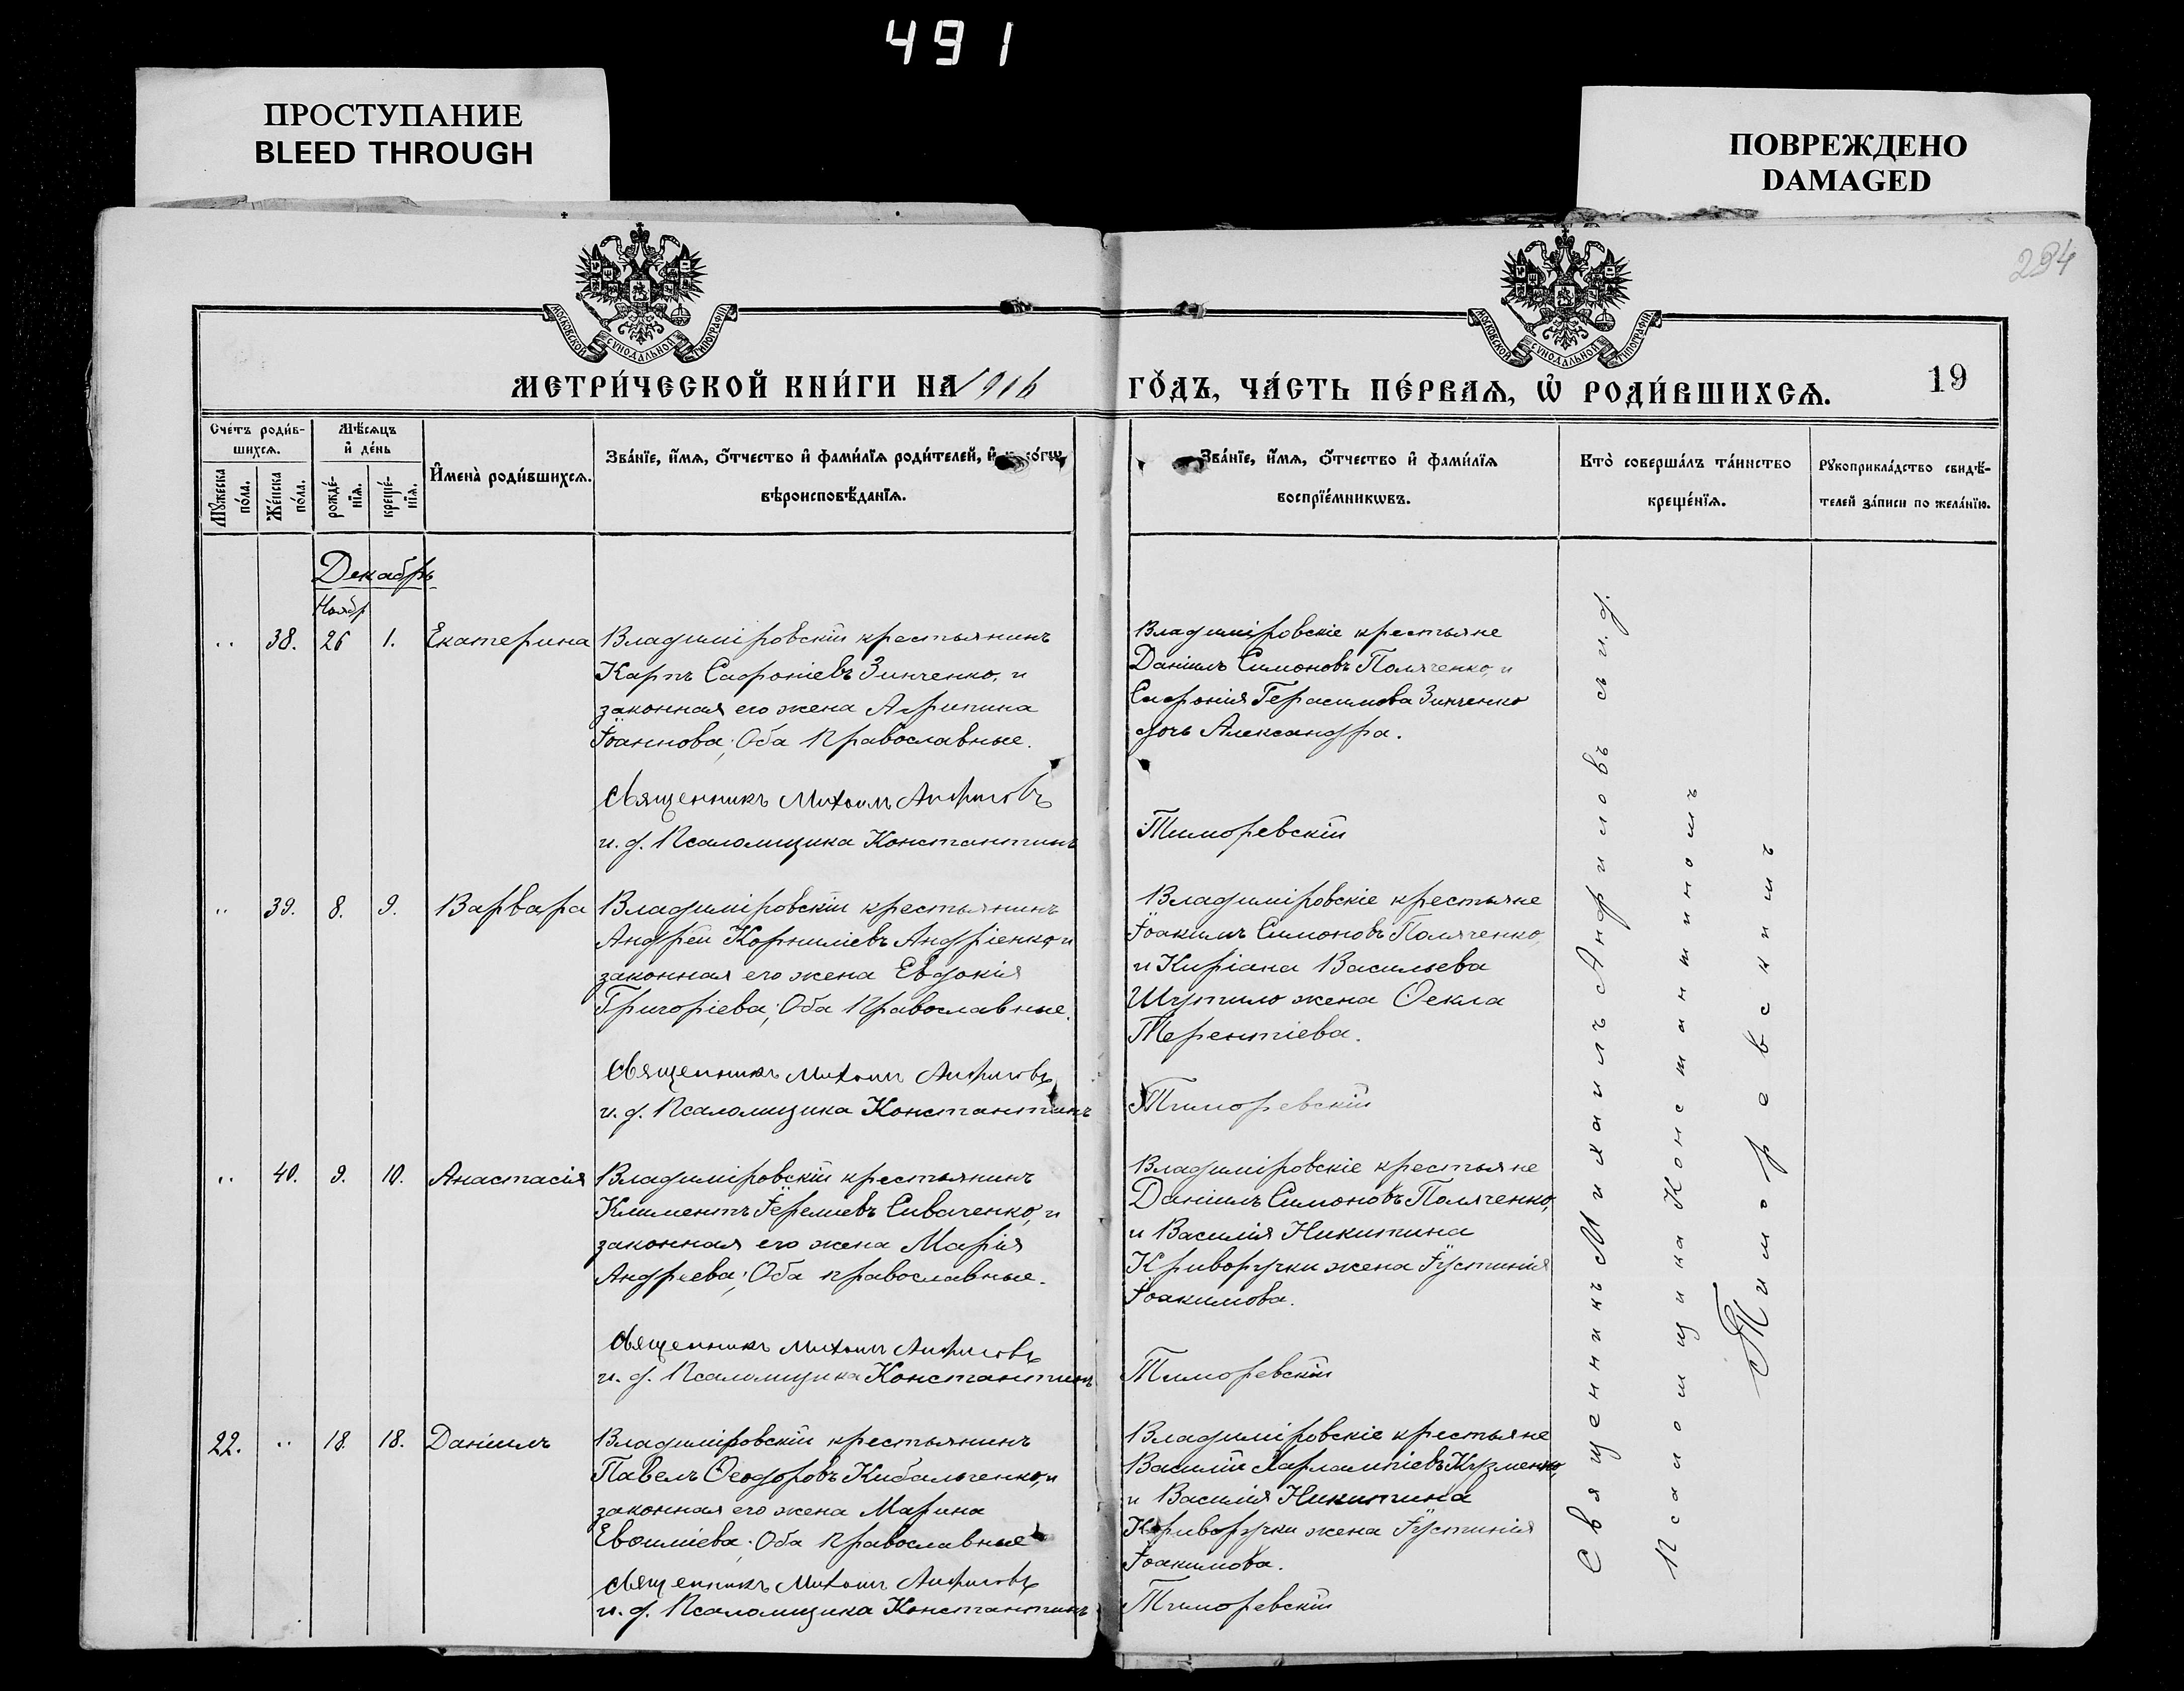 491
ПРОСТУПАНИЕ
BLEED THROUGH
ПОВРЕЖДЕНО
DAMAGED
294
МОСКОВСКОЙ СѴНОДАЛЬНОЙ ТИПОГРАФІИ
МОСКОВСКОЙ СѴНОДАЛЬНОЙ ТИПОГРАФІИ
МЕТРИ́ЧЕСКОЙ КНИ́ГИ НА 1916 ГО́ДЪ, ЧА́СТЬ ПЕ́РВАѦ, Ѽ РОДИ́ВШИХСѦ.
19
Сче́тъ роди́в-
шихсѧ.
Мѣ́сѧцъ
и҆ де́нь
Мꙋ́жеска
по́ла.
Же́нска
по́ла.
рожде́-
нїѧ.
креще́-
нїѧ.
И҆мена̀ роди́вшихсѧ.
Зва́нїе, и҆́мѧ, ѻ҆́тчество и҆ фами́лїѧ роди́телей, и҆
вѣроисповѣ́данїѧ.
Зва́нїе, и҆́мѧ, ѻ҆́тчество и҆ фами́лїѧ
воспрїе́мникѡвъ.
Кто̀ соверша́лъ та́инство
креще́нїѧ.
Рꙋкоприкла́дство свидѣ́-
телей за́писи по жела́нїю.
Декабрь
Ноябр
.. 38. 26 1. Екатерина
Владимірoвскій крестьянинъ
Карпъ Софроніевъ Зинченко, и
законная его жена Агрипина
Іоаннова; Оба Православные.
Священникъ Михаилъ Анфиловъ
и. д. Псаломщика Константинъ
Владиміровскіе крестьяне
Даніилъ Симоновъ Поляченко, и
Софронія Герасимова Зинченко
дочь Александра.
Тиморевскій
.. 39. 8. 9. Варвара
Владиміровскій крестьянинъ
Андрей Корниліевъ Андріенко и
законная его жена Евдокія
Григоріева; Оба Православные.
Священникъ Михаилъ Анфиловъ
и. д. Псаломщика Константинъ
Владиміровскіе крестьяне
Іоакимъ Симоновъ Поляченко,
и Киріана Васильева
Шутило жена Ѳекла
Терентіева.
Тиморевскій
.. 40. 9. 10. Анастасія
Владиміровскій крестьянинъ
Климентъ Іереміевъ Сиваченко, и
законная его жена Марія
Андреева; Оба православные.
Священникъ Михаилъ Анфиловъ
и. д. Псаломщика Константинъ
Владиміровскіе крестьяне
Даніилъ Симоновъ Поляченко,
и Василія Никитина
Криворучки жена Іустинія
Іоакимова.
Тиморевскій
22. .. 18. 18. Даніилъ
Владиміровскій крестьянинъ
Павелъ Ѳеодоровъ Кибальченко, и
законная его жена Марина
Евѳиміева; Оба Православные
Священникъ Михаилъ Анфиловъ
и. д. Псаломщика Константинъ
Владиміровскіе крестьяне
Василій Харлампіевъ Кузменко,
и Василія Никитина
Криворучки жена Іустинія
Іоакимова.
Тиморевскій
Священникъ Михаилъ Анфиловъ съ и. д.
Псаломщика Константиномъ
Тиморевскимъ